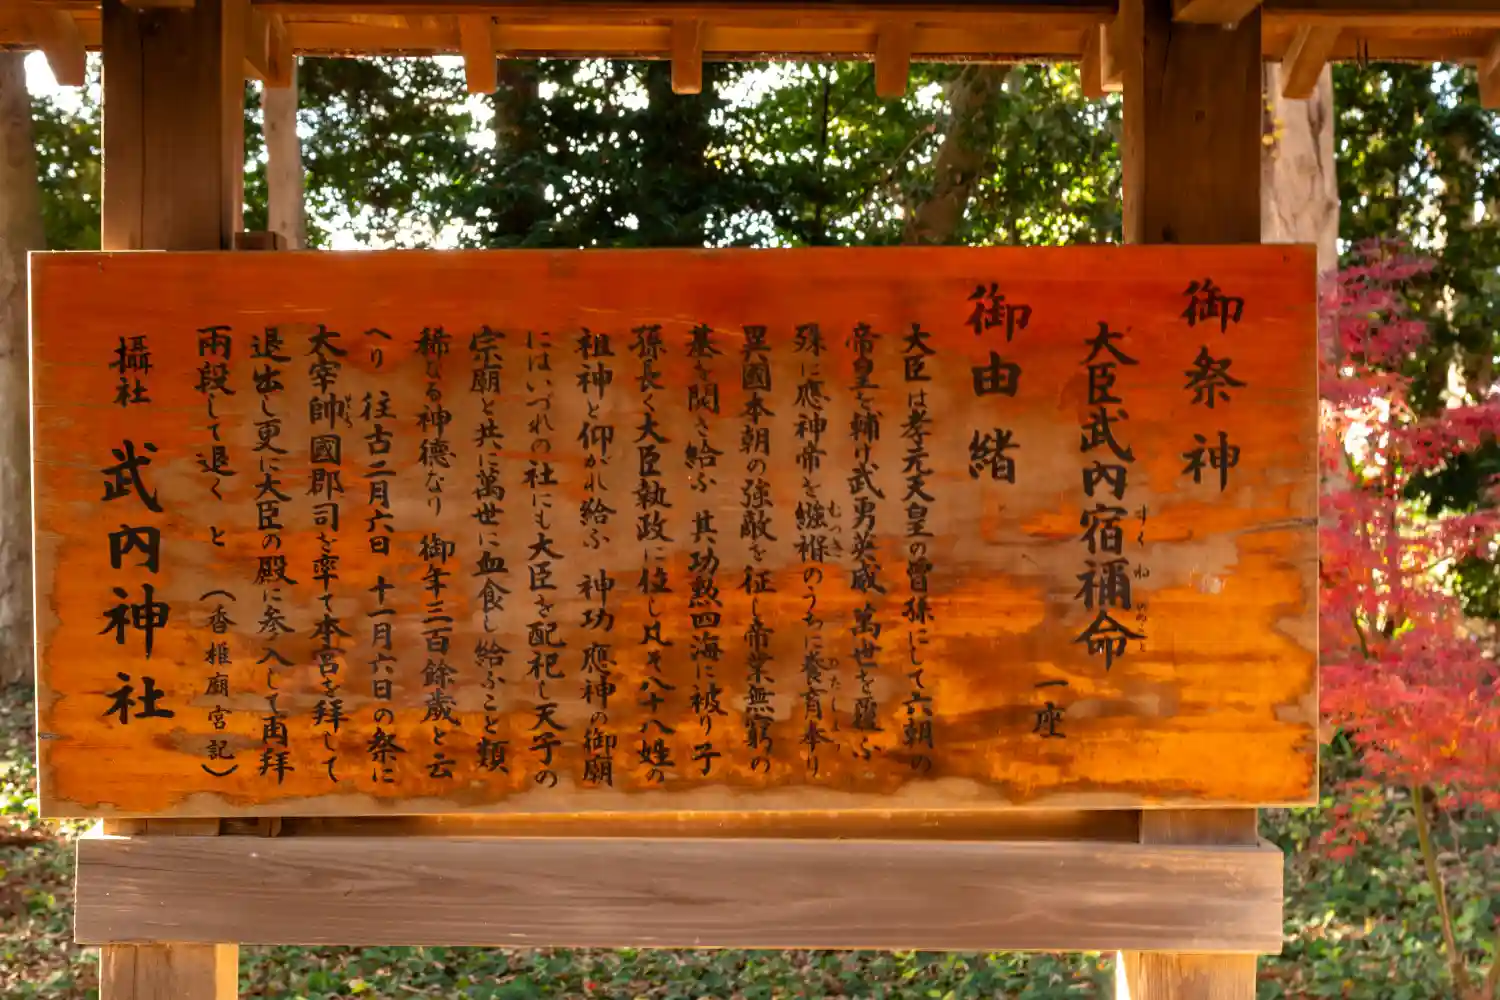 御祭神
大臣武內宿禰命 一座
すくねのみこと
御由緒
大臣は孝元天皇の曾孫にして六朝の
帝皇を輔け武勇英威萬世を覆ふ
殊に應神帝を繈褓のうちに養育奉り
むつき ひたし
異國本朝の強敵を征し帝業無窮の
基を開き給ふ 其功勲四海に被り子
孫長く大臣執政に位し凡そ八十八姓の
祖神と仰がれ給ふ 神功應神の御廟
にはいづれの社にも大臣を配祀し天子の
宗廟と共に萬世に血食し給ふこと類
稀なる神德なり 御年三百餘歳と云
へり 往古二月六日 十一月六日の祭に
太宰帥國郡司を率て本宮を拜して
退出し更に大臣の殿に参入して再拜
両段して退く と (香椎廟宮記)
攝社 武內神社